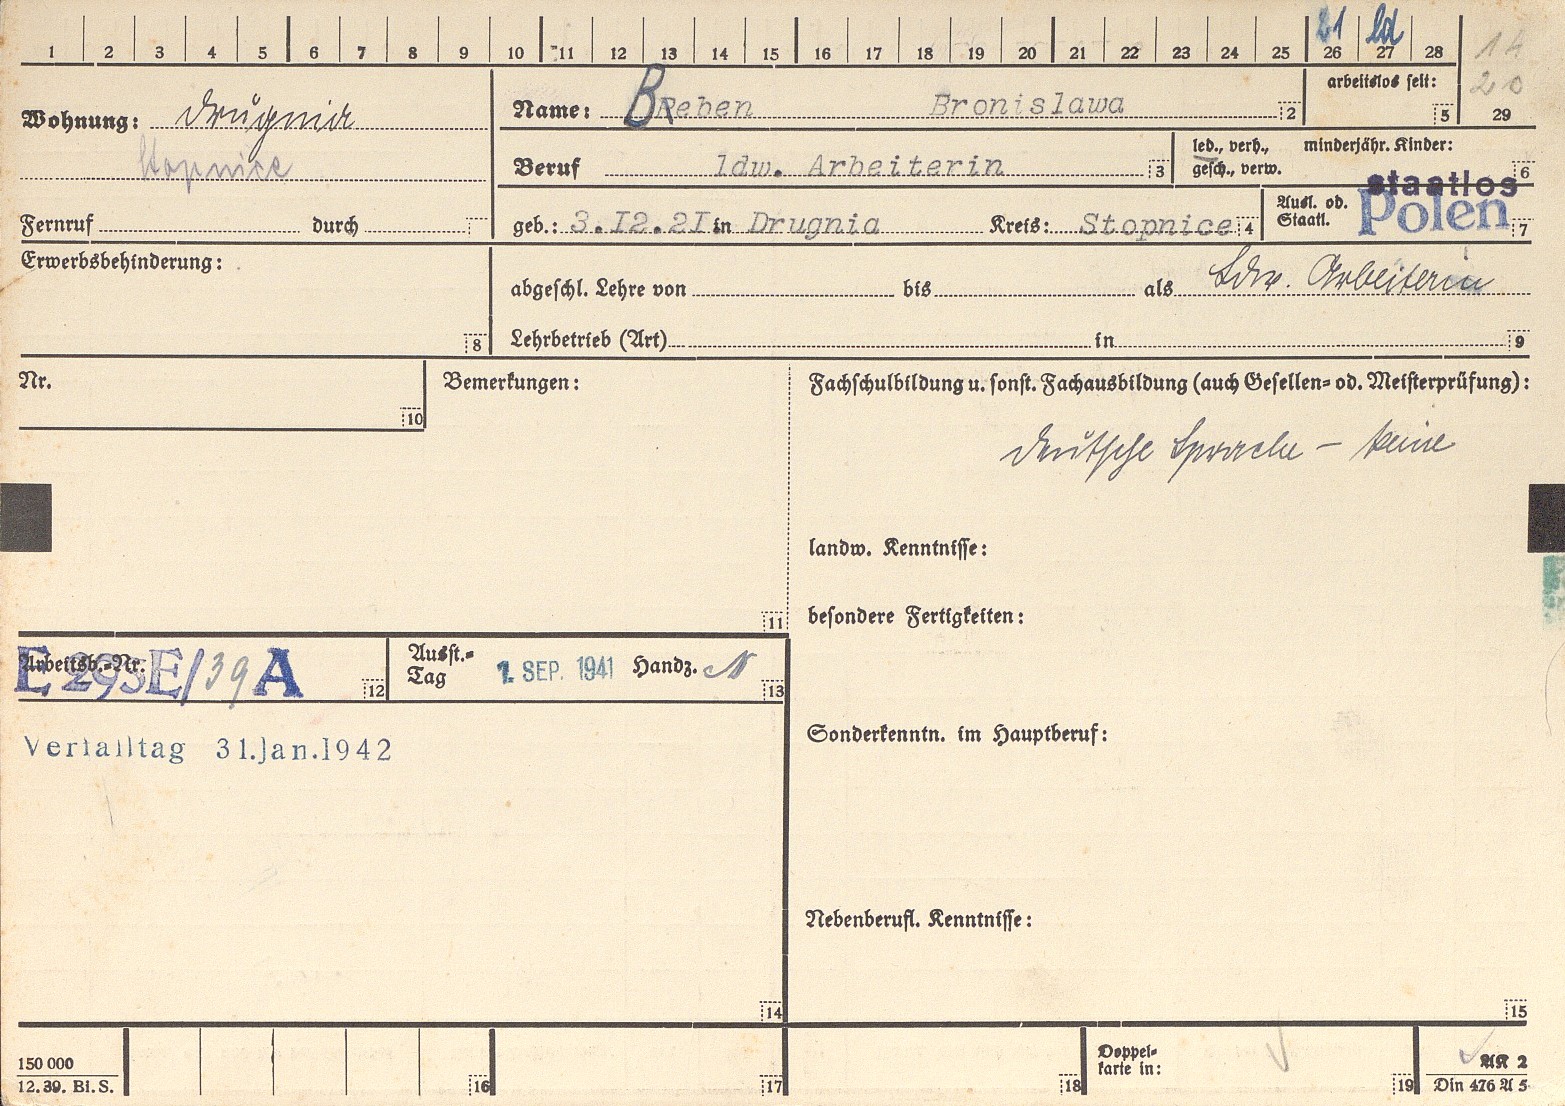 1 2 3 4 5 6 7 8 9 10 11 12 13 14 15 16 17 18 19 20 21 22 23 24 25 26 27 28
21 ld 14
20
29
arbeitslos seit:
5
Wohnung: Drugnia
Stopnice
Name: Breben Bronislawa 2
Beruf ldw. Arbeiterin 3
led., verh., minderjähr. Kinder:
gesch., verw. 6
Fernruf durch
geb.: 3.I2.2I in Drugnia Kreis: Stopnice 4
Ausl. od. Staatl. staatlos Polen 7
Erwerbsbehinderung:
8
abgeschl. Lehre von bis als Ldw. Arbeiterin
Lehrbetrieb (Art) in 9
Nr.
10
Bemerkungen:
11
Fachschulbildung u. sonst. Fachausbildung (auch Gesellen- od. Meisterprüfung):
Deutsche Sprache – keine
landw. Kenntnisse:
besondere Fertigkeiten:
Arbeitsb.-Nr. E 293E/39A 12
Ausst.-Tag 1. SEP. 1941 Handz. 13
Verfalltag 31.Jan.1942
14
Sonderkenntn. im Hauptberuf:
Nebenberufl. Kenntnisse:
15
150 000
12. 39. Bi. S.
16
17
18
Doppel-
karte in:
19
AK 2
Din 476 A 5